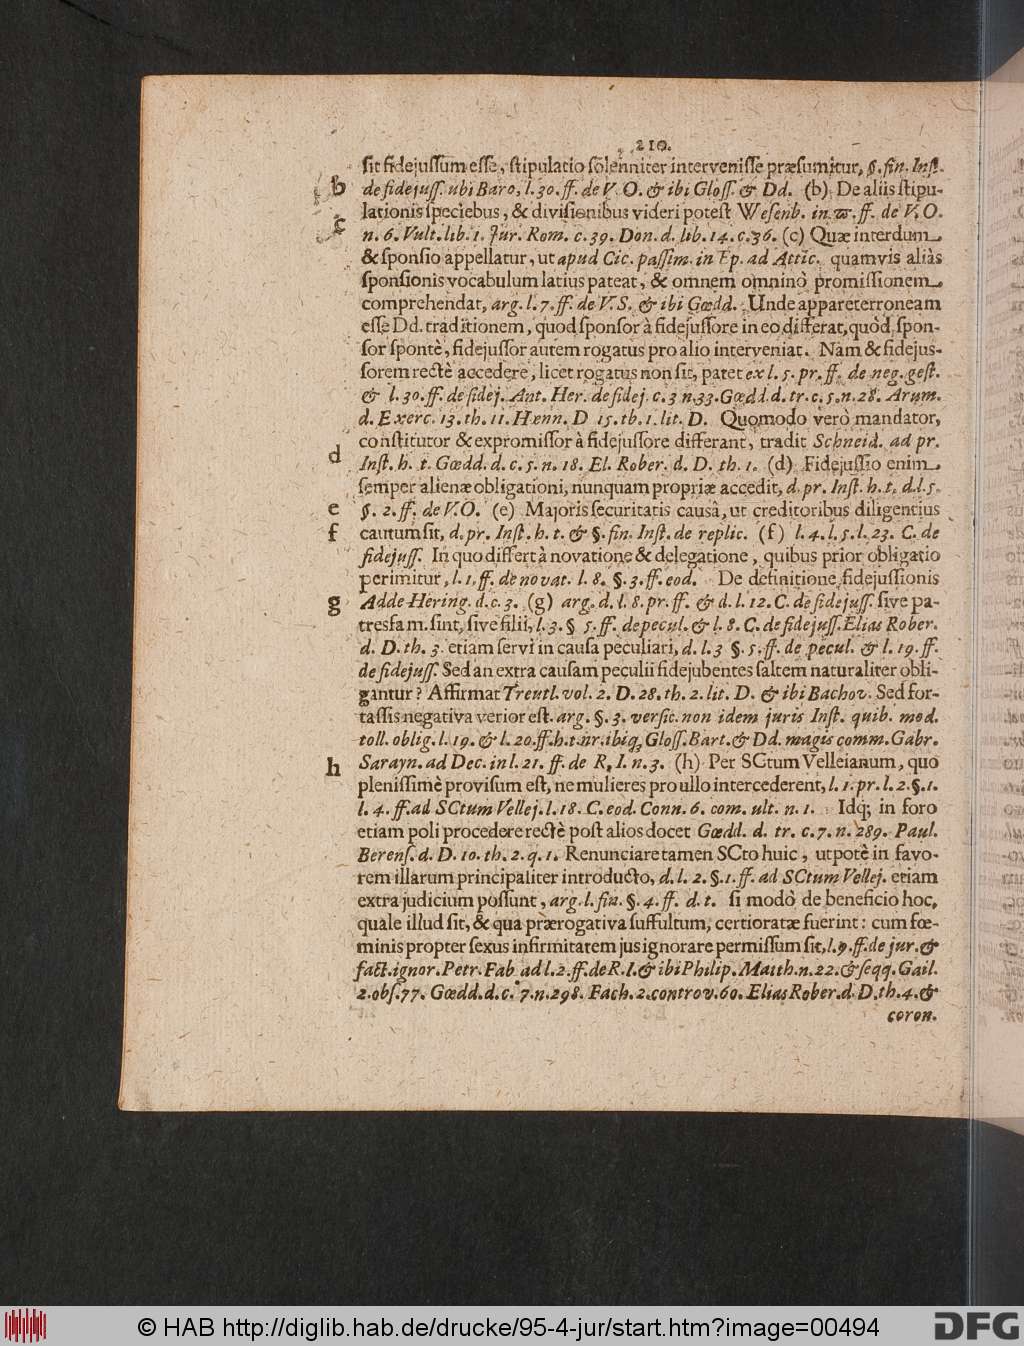 210.
sit fidejussum esse, stipulatio solenniter intervenisse præsumitur, §. fin. Inst.
b de fidejuss. ubi Baro, l. 30. ff. de V. O. & ibi Gloss. & Dd. (b) De aliis stipu-
c lationis speciebus, & divisionibus videri potest Wesenb. in ϖ. ff. de V. O.
n. 6. Vult. lib. 1. Jur. Rom. c. 39. Don. d. lib. 14. c. 36. (c) Quæ interdum
& sponsio appellatur, ut apud Cic. passim. in Ep. ad Attic. quamvis aliàs
sponsionis vocabulum latius pateat, & omnem omninò promissionem
comprehendat, arg. l. 7. ff. de V. S. & ibi Gœdd. Unde appareterroneam
esse Dd. traditionem, quod sponsor à fidejussore in eo differat, quòd spon-
sor spontè, fidejussor autem rogatus pro alio interveniat. Nam & fidejus-
sorem rectè accedere, licet rogatus non sit, patet ex l. 5. pr. ff. de neg. gest.
& l. 30. ff. de fidej. Ant. Her. de fidej. c. 3 n. 33. Gœdd. d. tr. c. 5. n. 28. Arum.
d. Exerc. 13. th. 11. Hænn. D 15. th. 1. lit. D. Quomodo verò mandator,
constitutor & expromissor à fidejussore differant, tradit Schneid. ad pr.
d Inst. h. t. Gœdd. d. c. 5. n. 18. El. Rober. d. D. th. 1. (d) Fidejussio enim
semper alienæ obligationi, nunquam propriæ accedit, d. pr. Inst. h. t. d. l. 5.
e §. 2. ff. de V. O. (e) Majoris securitatis causâ, ut creditoribus diligentius
f cautum sit, d. pr. Inst. h. t. & §. fin. Inst. de replic. (f) l. 4. l. 5. l. 23. C. de
fidejuss. In quo differt à novatione & delegatione, quibus prior obligatio
perimitur, l. 1. ff. de novat. l. 8. §. 3. ff. eod. De definitione fidejussionis
g Adde Hering. d. c. 3. (g) arg. d. l. 8. pr. ff. & d. l. 12. C. de fidejuss. sive pa-
tresfam. sint, sive filii, l. 3. § 5. ff. de pecul. & l. 8. C. de fidejuss. Elias Rober.
d. D. th. 3. etiam servi in causa peculiari, d. l. 3 §. 5. ff. de pecul. & l. 19. ff.
de fidejuss. Sed an extra causam peculii fidejubentes saltem naturaliter obli-
gantur? Affirmat Treutl. vol. 2. D. 28. th. 2. lit. D. & ibi Bachov. Sed for-
tassis negativa verior est. arg. §. 3. versic. non idem juris Inst. quib. mod.
toll. oblig. l. 19. & l. 20. ff. h. t. ubi ibiq; Gloss. Bart. & Dd. magis comm. Gabr.
h Sarayn. ad Dec. in l. 21. ff. de R. I. n. 3. (h) Per SCtum Velleianum, quo
plenissimè provisum est, ne mulieres pro ullo intercederent, l. 1. pr. l. 2. §. 1.
l. 4. ff. ad SCtum Vellej. l. 18. C. eod. Conn. 6. com. ult. n. 1. Idq; in foro
etiam poli procedere rectè post alios docet Gœdd. d. tr. c. 7. n. 289. Paul.
Berens. d. D. 10. th. 2. q. 1. Renunciare tamen SCto huic, utpotè in favo-
rem illarum principaliter introducto, d. l. 2. §. 1. ff. ad SCtum Vellej. etiam
extra judicium possunt, arg. l. fin. §. 4. ff. d. t. si modò de beneficio hoc,
quale illud sit, & qua prærogativa suffultum, certioratæ fuerint: cum fœ-
minis propter sexus infirmitatem jus ignorare permissum sit, l. 9. ff. de jur. &
fact. ignor. Petr. Fab ad l. 2. ff. de R. I. & ibi Philip. Matth. n. 22. & seqq. Gail.
2. obs. 77. Gœdd. d. c. 7. n. 298. Fach. 2. controv. 60. Elias Rober. d. D. th. 4. &
coron.
© HAB http://diglib.hab.de/drucke/95-4-jur/start.htm?image=00494
DFG